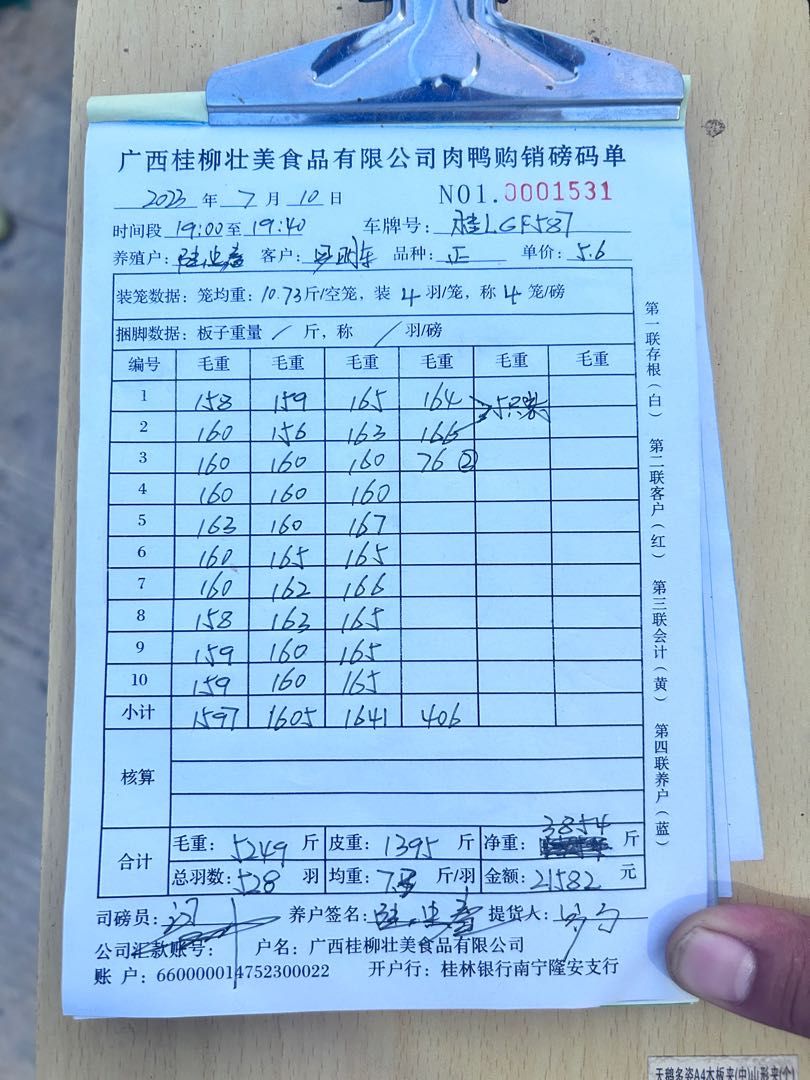 广西桂柳壮美食品有限公司肉鸭购销磅码单
2023 年 7 月 10 日 NO1.0001531
时间段 19:00 至 19:40 车牌号: 桂LGF587
养殖户: 客户: 品种: 正 单价: 5.6
装笼数据: 笼均重: 10.73斤/空笼, 装 4 羽/笼, 称 4 笼/磅
捆脚数据: 板子重量 / 斤, 称 / 羽/磅
编号 毛重 毛重 毛重 毛重 毛重 毛重
1 158 159 165 164 5只装
2 160 156 163 166
3 160 160 160 76 ②
4 160 160 160
5 163 160 167
6 160 165 165
7 160 162 166
8 158 163 165
9 159 160 165
10 159 160 165
小计 1597 1605 1641 406
核算
合计 毛重: 5249 斤 皮重: 1395 斤 净重: 3854 斤
总羽数: 528 羽 均重: 斤/羽 金额: 21582 元
司磅员: 养户签名: 提货人:
公司汇款账号: 户名: 广西桂柳壮美食品有限公司
账 户: 660000014752300022 开户行: 桂林银行南宁隆安支行
第一联存根(白) 第二联客户(红) 第三联会计(黄) 第四联养户(蓝)
天鹅多姿A4木板夹(中)山形夹(个)